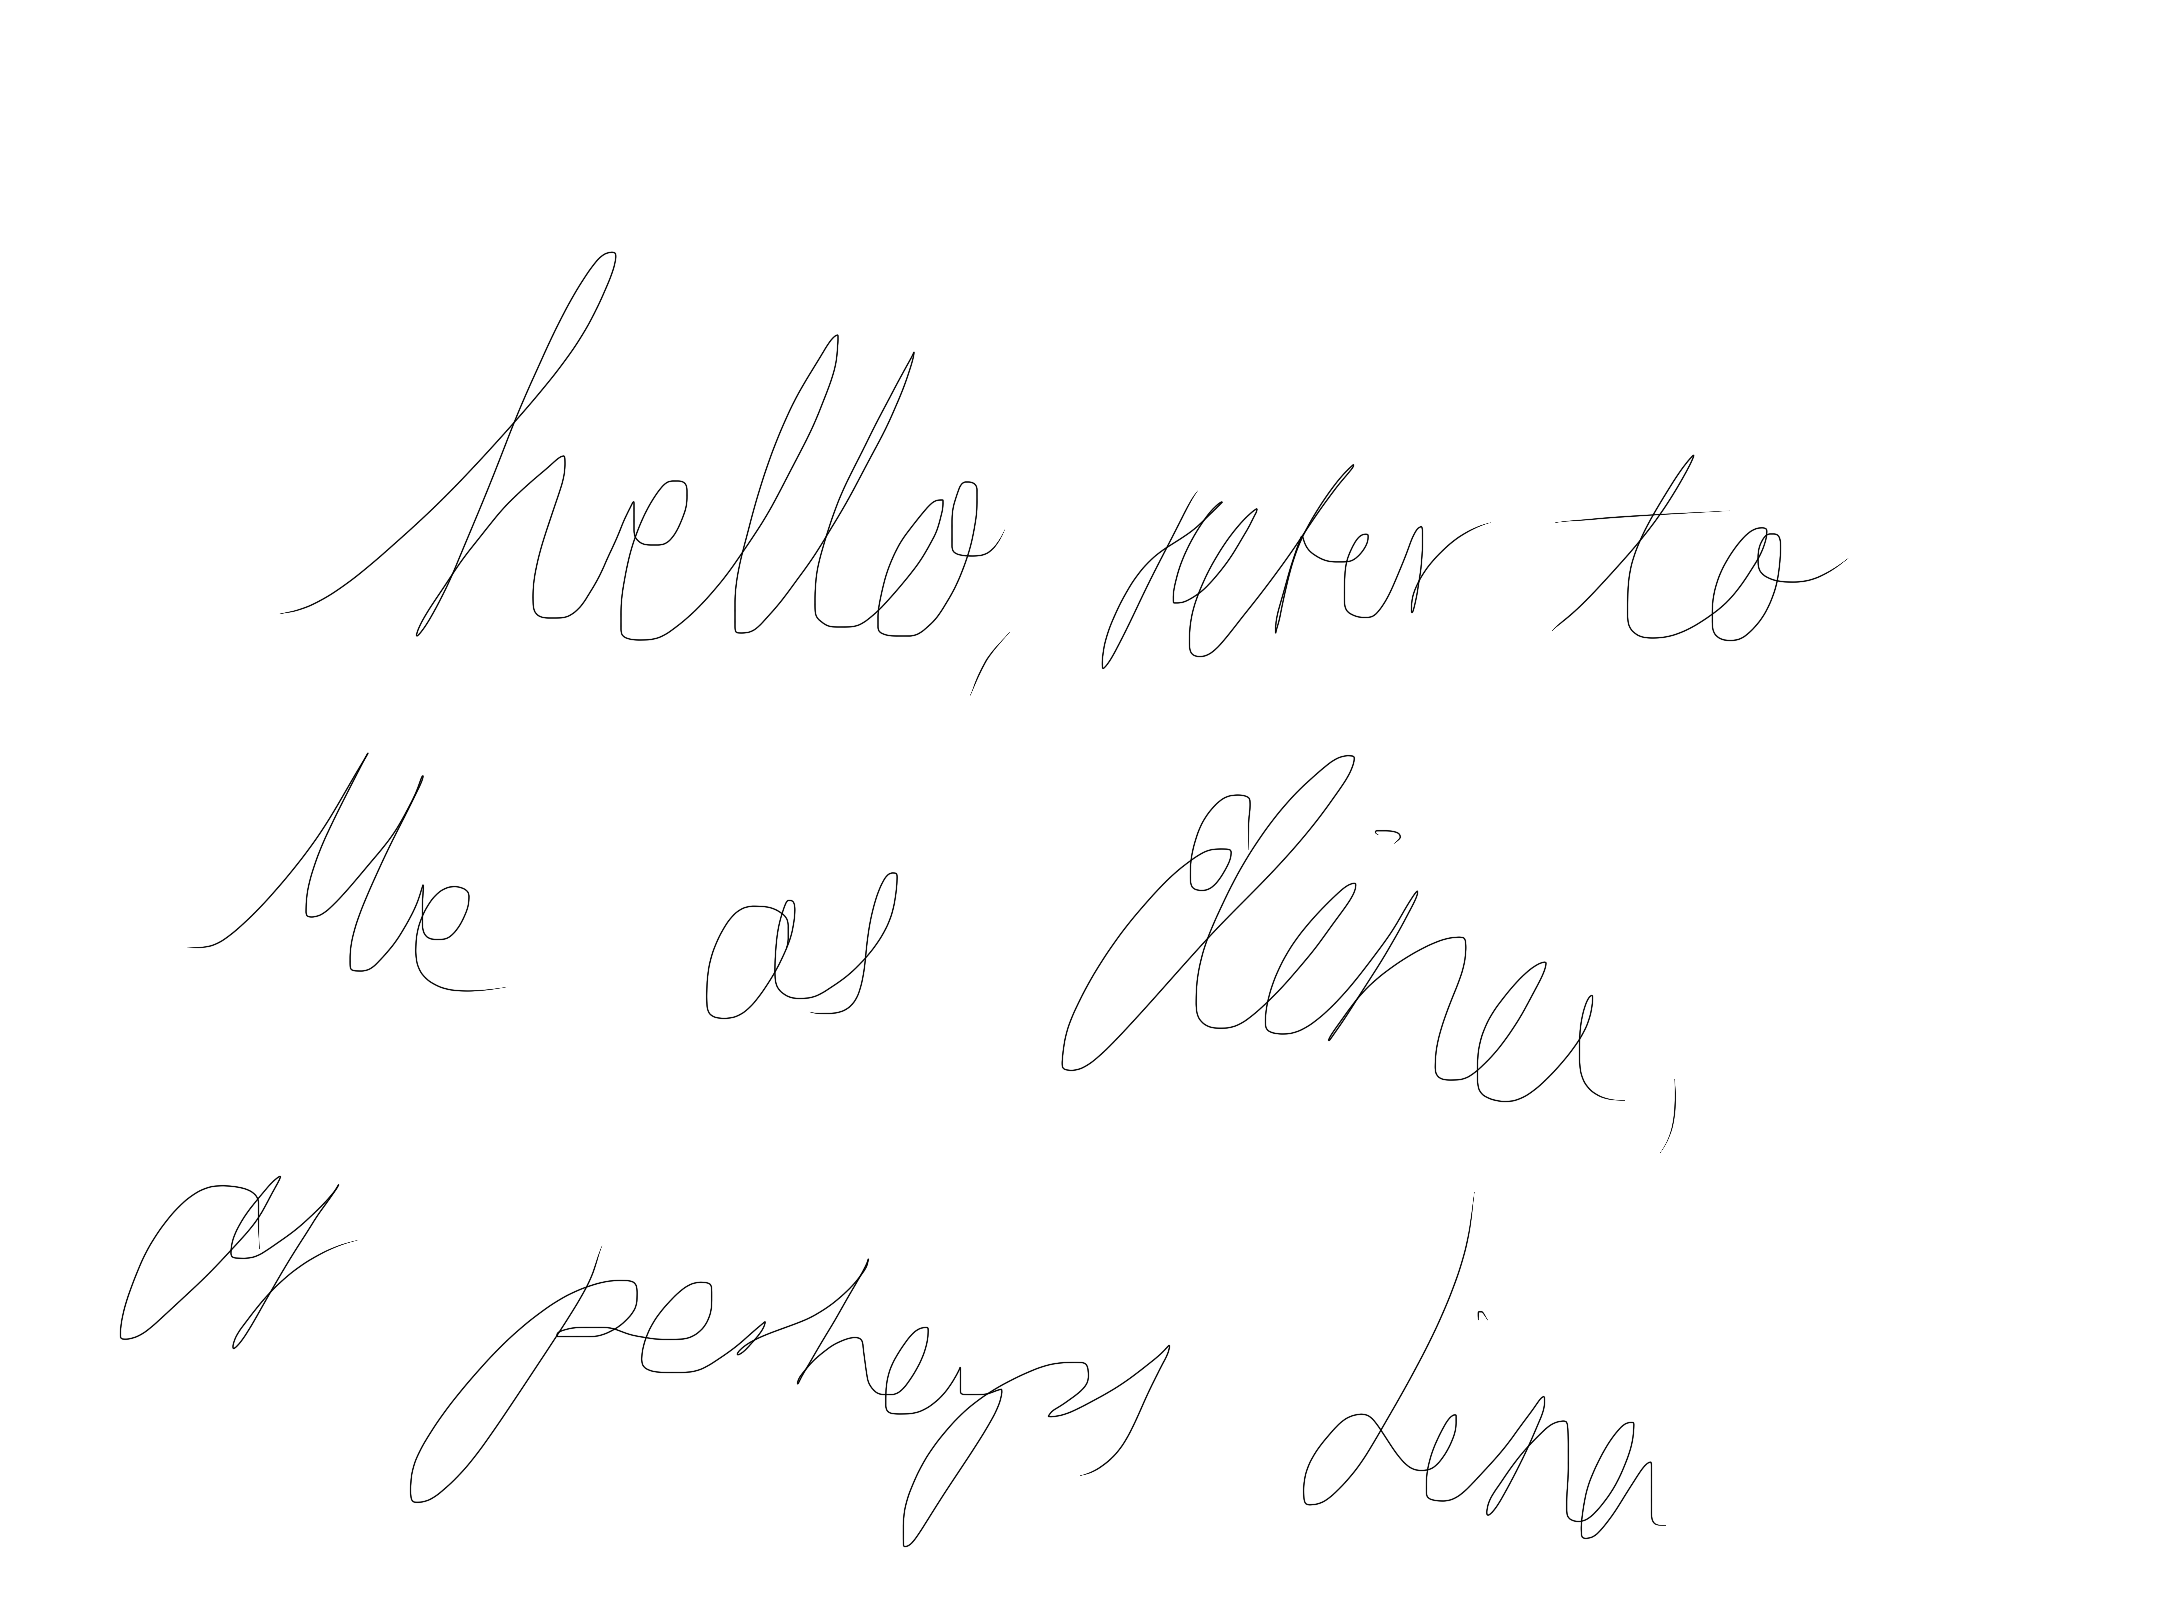 hello, refer to
Me as Elina,
or perhaps Lina